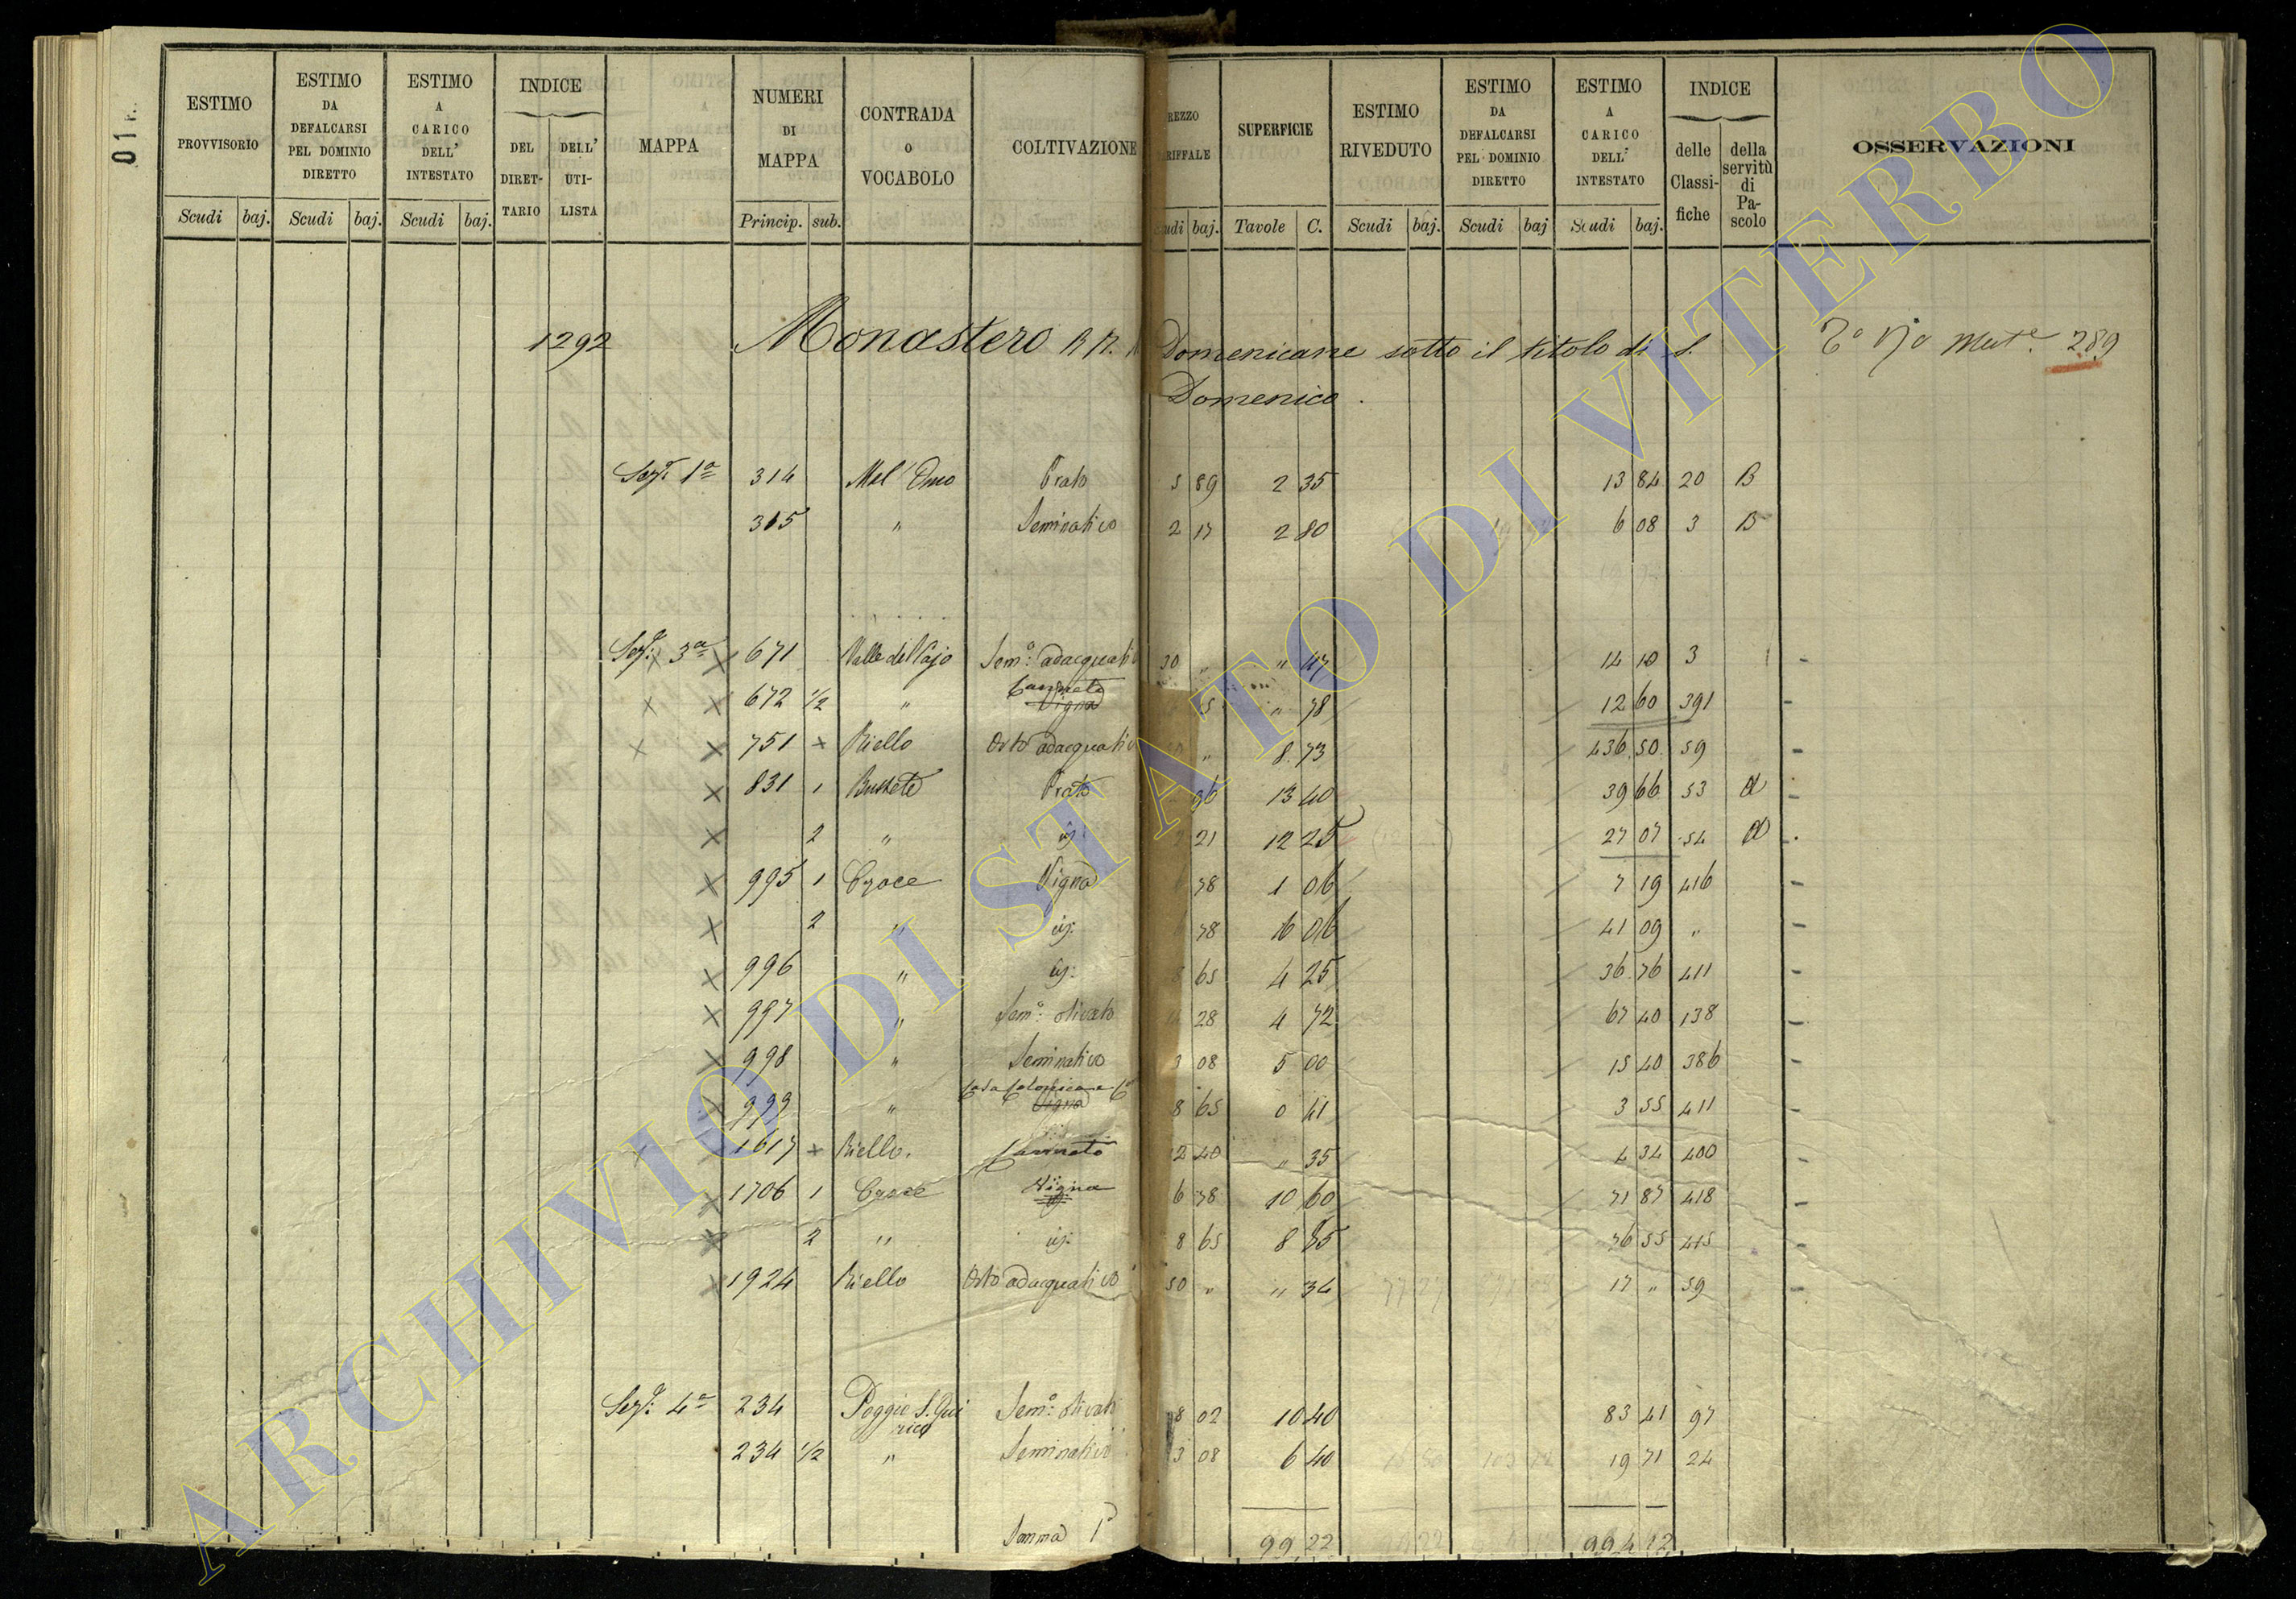 ESTIMO PROVVISORIO
ESTIMO DA DEFALCARSI PEL DOMINIO DIRETTO
ESTIMO A CARICO DELL' INTESTATO
INDICE
DEL DIRETTARIO
DELL' UTILISTA
MAPPA
NUMERI DI MAPPA
CONTRADA O VOCABOLO
COLTIVAZIONE
REZZO RIFFALE
SUPERFICIE
ESTIMO RIVEDUTO
ESTIMO DA DEFALCARSI PEL DOMINIO DIRETTO
ESTIMO A CARICO DELL' INTESTATO
INDICE
delle Classifiche
della servitù di Pascolo
OSSERVAZIONI
Scudi baj. Scudi baj. Scudi baj. Princip. sub. udi baj. Tavole C. Scudi baj. Scudi baj Scudi baj.
1292 Monastero RR. Domenicane sotto il titolo di S. 289
Domenico.
Sez. 1a 314 Prato 5 89 2 35 13 84 20 B
315 " Seminativo 2 17 2 80 6 08 3 B
Sez. 3a 671 Valle del Cajo Sem.o adacquati 30 " " 47 14 10 3 -
672 1/2 " Canneto Vigna " 78 12 60 391 -
751 Riello Orto adacquativo " 8 73 436 50 59 -
831 1 Bussete Prato 96 13 40 39 66 53 A -
2 " id: 21 12 25 27 07 54 A -
995 1 Croce Vigna 78 1 06 7 19 416 -
2 " id: 78 6 06 41 09 " -
996 " id: 8 65 4 25 36 76 411 -
997 " Sem.o olivato 28 4 72 67 40 138 -
998 " Seminativo 3 08 5 00 15 40 386 -
999 " Casa Colonica e C Vigna 8 65 0 41 3 55 411 -
1617 Riello. Canneto 12 40 " 35 4 34 400 -
1706 1 Croce Vigna 6 78 10 60 71 87 418 -
2 " id: 8 65 8 85 76 55 415 -
1924 Riello Orto adacquativo 50 " " 34 17 " 59 -
Sez. 4a 234 Poggio S. Quirico Sem.o olivato 8 02 10 40 83 41 97
234 1/2 " Seminativo 3 08 6 40 19 71 24
Somma 1a 99 22 994 12
ARCHIVIO DI STATO DI VITERBO